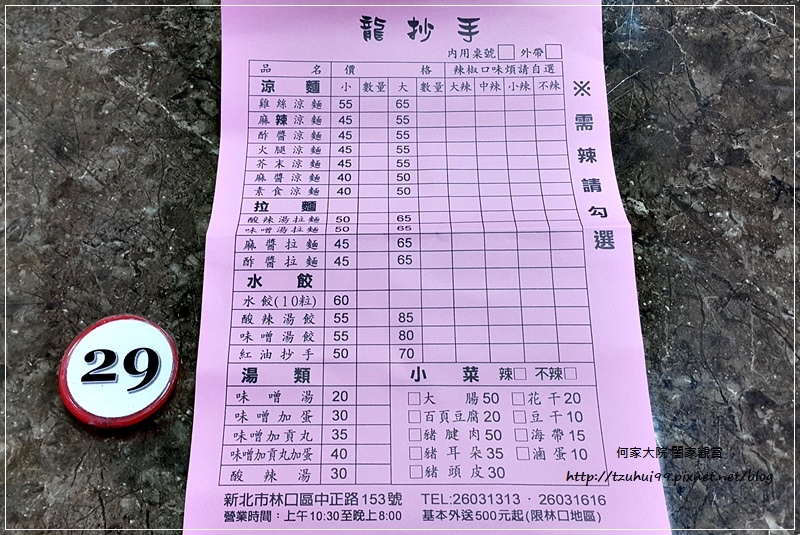 龍抄手
內用桌號□ 外帶□
品名 價格 辣椒口味煩請自選
涼麵 小 數量 大 數量 大辣 中辣 小辣 不辣
雞絲涼麵 55 65
麻辣涼麵 45 55
酢醬涼麵 45 55
火腿涼麵 45 55
芥末涼麵 45 55
麻醬涼麵 40 50
素食涼麵 40 50
拉麵
酸辣湯拉麵 50 65
味噌湯拉麵 50 65
麻醬拉麵 45 65
酢醬拉麵 45 65
水餃
水餃(10粒) 60
酸辣湯餃 55 85
味噌湯餃 55 80
紅油抄手 50 70
湯類
味噌湯 20
味噌加蛋 30
味噌加貢丸 35
味噌加貢丸加蛋 40
酸辣湯 30
小菜 辣□ 不辣□
□大腸50 □花干20
□百頁豆腐20 □豆干10
□豬腱肉50 □海帶15
□豬耳朵35 □滷蛋10
□豬頭皮30
※需辣請勾選
新北市林口區中正路153號 TEL:26031313．26031616
營業時間：上午10:30至晚上8:00 基本外送500元起(限林口地區)
29
何家大院 闔家觀賞
http://tzuhui99.pixnet.net/blog